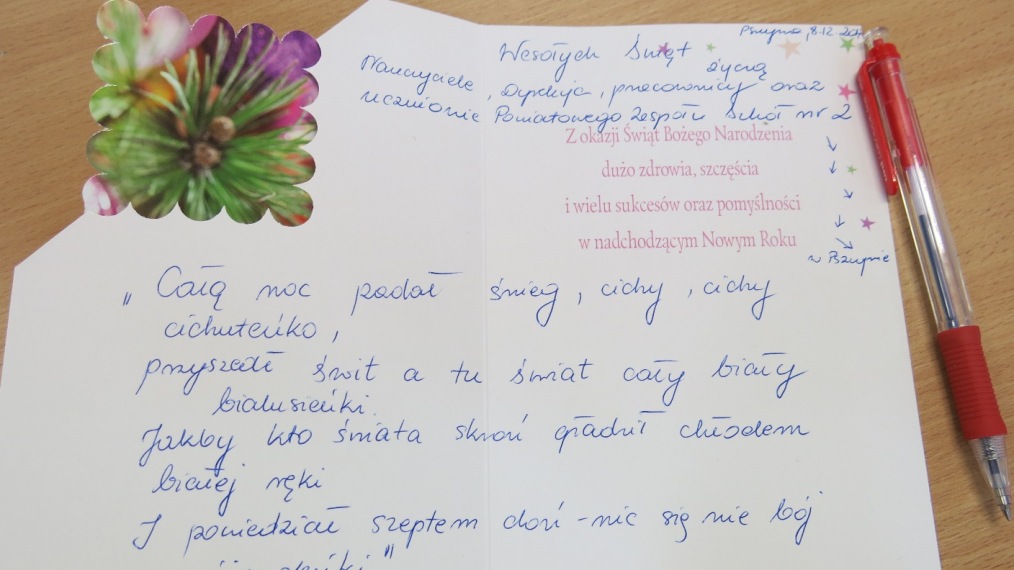 Pszczyna, 8.12.
Wesołych Świąt
życzą
Nauczyciele, Dyrekcja, pracownicy oraz
uczniowie Powiatowego Zespołu Szkół nr 2
Z okazji Świąt Bożego Narodzenia
dużo zdrowia, szczęścia
i wielu sukcesów oraz pomyślności
w nadchodzącym Nowym Roku
w Pszczynie
„Całą noc padał śnieg, cichy, cichy
cichuteńko,
przyszedł świt a tu świat cały biały
bialusieńki.
Jakby kto świata skroń gładził chłodem
białej ręki
I powiedział szeptem doń - nic się nie bój